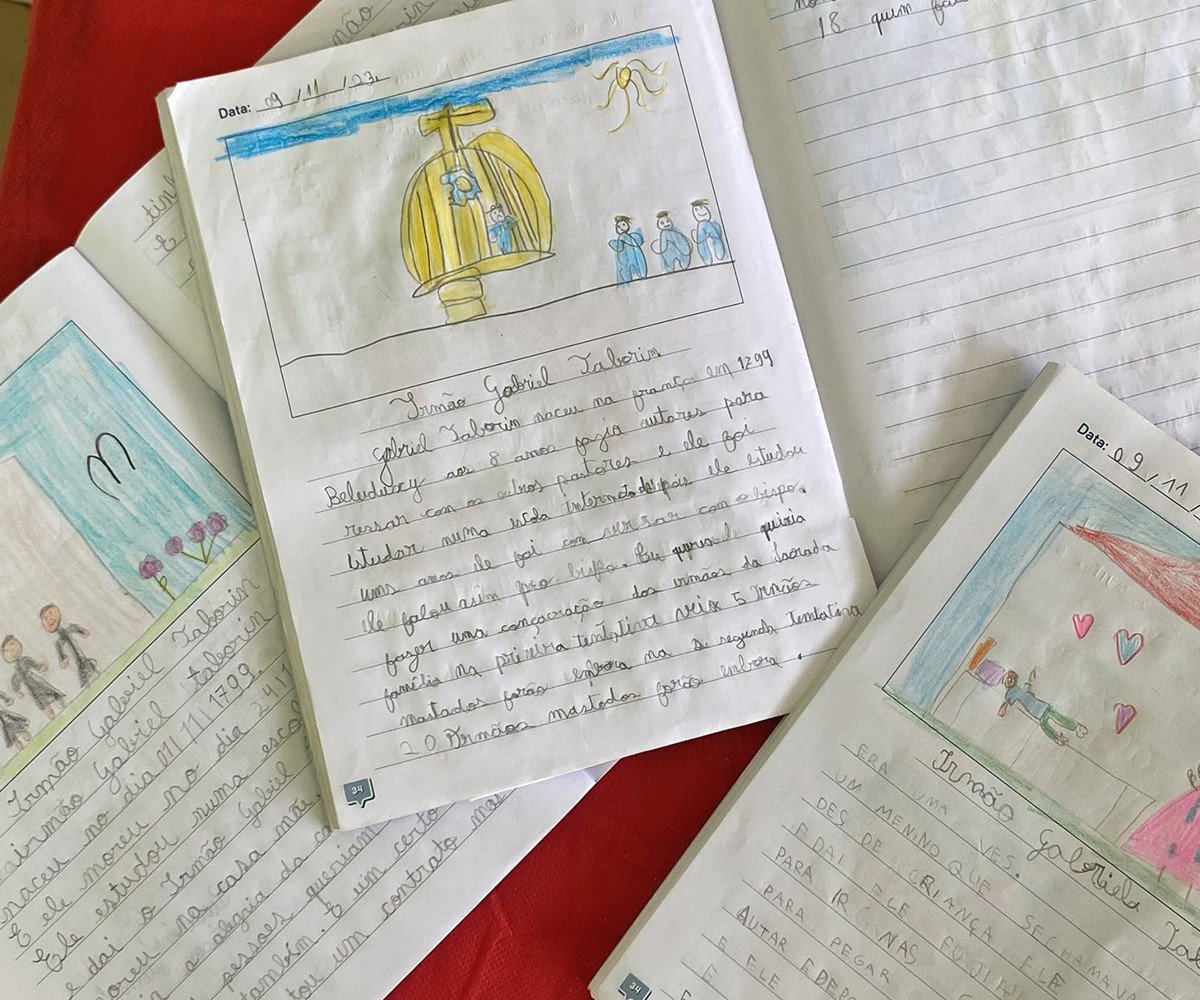 não
18 quim
Data: 09 / 11 / 23
Irmão Gabriel Taborin
gabriel Taborin naceu na frança em 1299
Beleduxy aos 8 anos fazia autares para
ressar com os outros pastores e ele foi
istudar numa iscola Internato depois ele istudou
uns anos ele foi com ver sar com o bispo.
ele falou asim pro bispo. Eu quiria
fazer uma conçacração dos irmãos da Sacrada
família na primeira tentativa veix 5 irmãos
mastados forão embora na segunda tentativa
20 Irmãos mastodos forão embora.
34
M
Irmão Gabriel Taborin
irmão gabriel taborin
naceu no dia 11/11/1799.
E ele moreu no dia 24/1
Ele estudou numa escol
e dai o Irmão Gabriel
moreu na casa mãe
a alegria da ca
pesoes queriam
também. E um certo
tou um contrato mas
Data: 09 / 11
Irmão Gabriela Ta
ERA UMA VES.
UM MENINO QUE SECHAMAVA
DES DE CRIANÇA ELE
E DAI ELE FUJI
PARA IR NAS
PARA PEGAR
AUTAR EDEPO
E ELE
E
34